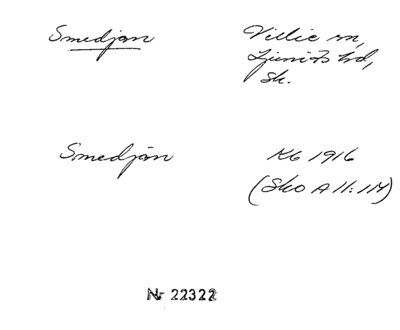 Smedjan Villie sn,
Ljunits hd,
Sk.
Smedjan KG 1916
(Sko A 11:114)
Nr 22322